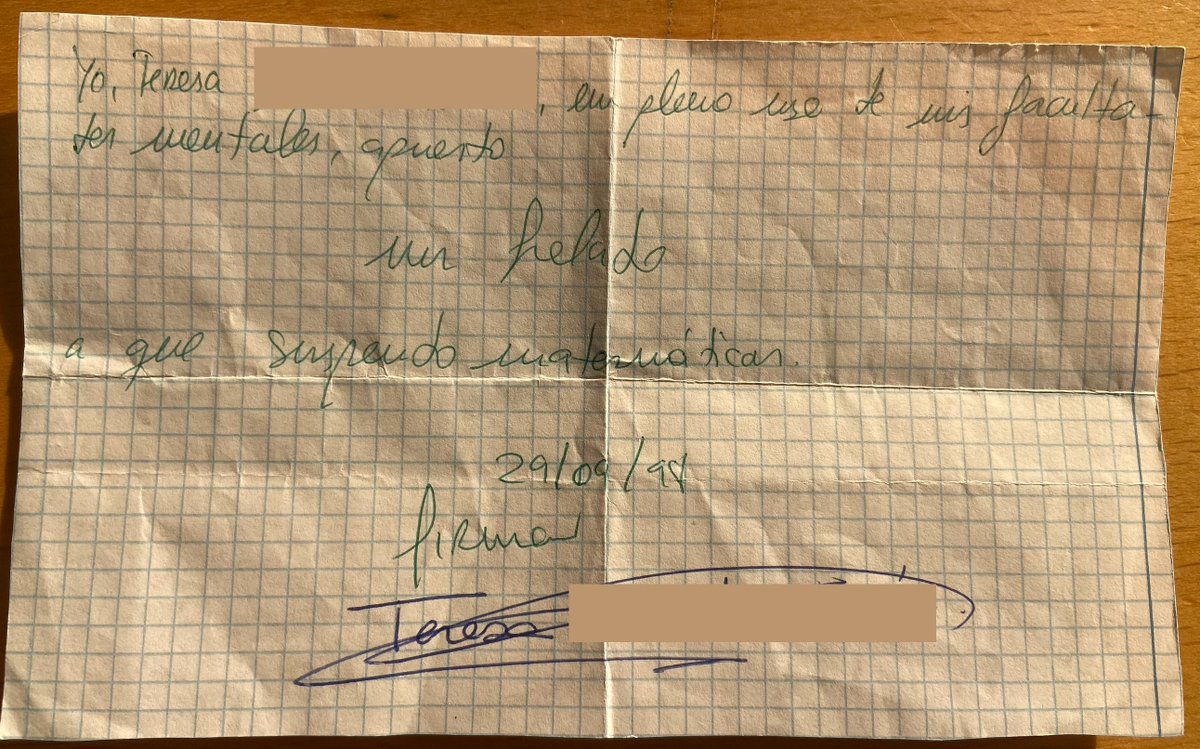 Yo, Teresa , en pleno uso de mis faculta-
des mentales, apuesto
un helado
a que suspendo matemáticas.
29/09/98
firmar
Teresa